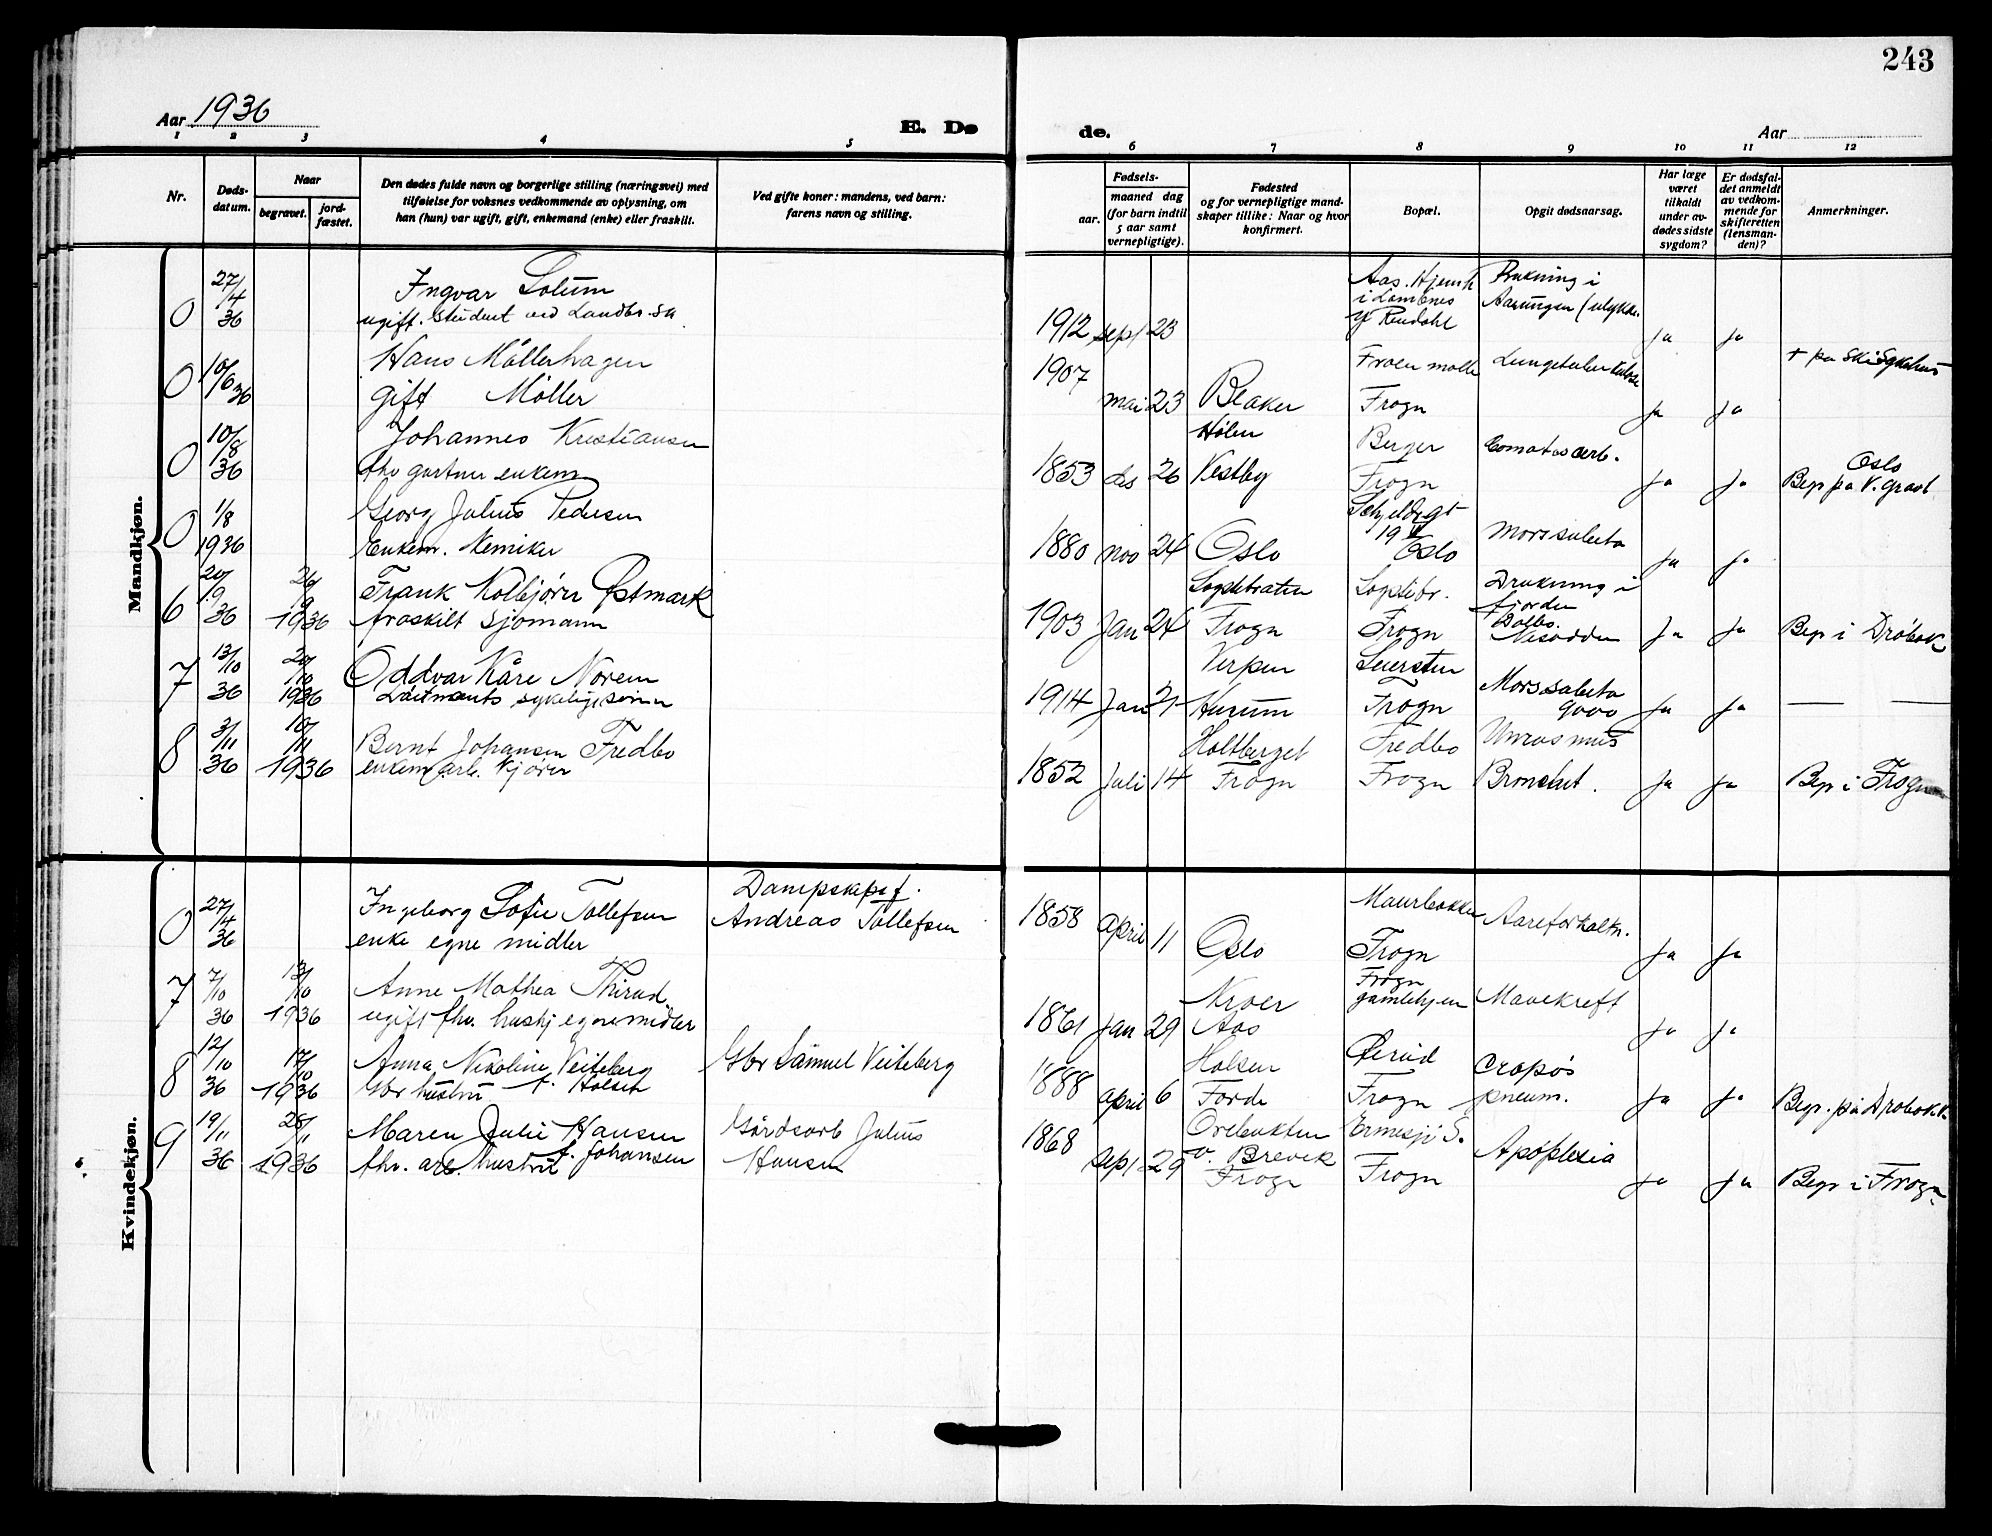 243
Aar 1936
E. Dø
de.
Aar
1 2 3 4 5 6 7 8 9 10 11 12
Nr.
Døds-
datum.
Naar
begravet.
jord-
fæstet.
Den dødes fulde navn og borgerlige stilling (næringsvei) med
tilføielse for voksnes vedkommende av oplysning, om
han (hun) var ugift, gift, enkemand (enke) eller fraskilt.
Ved gifte koner: mandens, ved barn:
farens navn og stilling.
Fødsels-
aar.
maaned dag
(for barn indtil
5 aar samt
vernepligtige).
Fødested
og for vernepligtige mand-
skaper tillike: Naar og hvor
konfirmert.
Bopæl.
Opgit dødsaarsag.
Har læge
været
tilkaldt
under av-
dødes sidste
sygdom?
Er dødsfal-
det anmeldt
av vedkom-
mende for
skifteretten
(lensman-
den)?
Anmerkninger.
Mandkjøn.
0 27/4 36 Ingvar Solum
ugift. Student ved Landbr.
1912 sept 23
Aas. Hjemh
i
Y Rendahl
Drukning i
Aarungen (ulykke.
Ja Ja
0 10/6 36 Hans Möllerhagen
gift Möller
1907 mai 23 Blaker
Froen mölle
Frogn
Lungetuberkulose
Ja Ja + pa Ski Sykehus
0 10/8 36 Johannes Kristiansen
fhv gartner enkem
1853 des 26 Hølen
Vestby
Berger
Frogn
Ja Ja Oslo
Begr pa V. gravl
0 1/8 1936 Georg Julius Pedersen
Enkem. Kemiker
1880 nov 24 Oslo
19 Oslo
Mors subita
Ja Ja
6 20/9 36 26/9 1936 Frank Kolbjørn Østmark
fraskilt Sjömann
1903 Jan 24
Frogn
Frogn
Drukning i
fjorden
Nesodden
Ja Ja Begr i Dröbak
7 13/10 36 20/10 1936 Oddvar Kåre Norem
1914 Jan 21 Verpen
Hurum
Seiersten
Frogn
Mors subita
Ja Ja — —
8 3/11 36 10/11 1936 Bernt Johansen Fredbo
enkem arb. Kjører
1852 Juli 14 Holtberget
Frogn
Fredbo
Frogn
Ja Ja Begr i Frogn
Kvindekjøn.
0 27/4 36 Ingeborg Sofie Tollefsen
enke egne midler
Dampskipsf.
Andreas Tollefsen
1858 april 11 Oslo
Maurbakken
Frogn
Aareforkalkn.
Ja Ja
7 7/10 36 13/10 1936 Anne Mathea Thirud
ugift fhv. hushj egne midler
1861 Jan 29 Kroer
Aas
Frogn
gamlehjem
Mavekreft
Ja Ja
8 12/10 36 17/10 1936 Anna Nikoline Veiteberg
Gbr hustru f. Holsen
Gbr Samuel Veiteberg
1888 april 6 Holsen
Förde
Øerud
Frogn
pneum.
Ja Ja Begr. på Dröbak k.
9 19/11 36 28/11 1936 Maren Julie Hansen
fhv. arb. hustru f. Johansen
Gårdsarb Julius
Hansen
1868 sept 29 Orebukten
v. Brevik
Frogn
Ermesjö S.
Frogn
Apoplexia
Ja Ja Begr i Frogn.